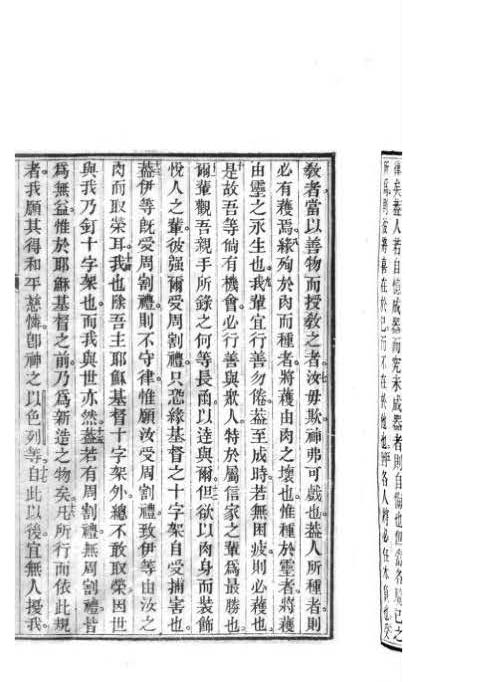 律矣蓋人若自憶成器而究未成器者則自也但當各驗己之
所爲則後將喜在於己而不在於他也各人將必任本負也受
敎者當以善物而授敎之者汝毋欺神弗可戲也葢人所種者則
必有穫焉緣殉於肉而種者將穫由肉之壞也惟種於靈者將穫
由靈之永生也我輩宜行善勿倦葢至成時若無困疲則必穫也
是故吾等有機會必行善與眾人特於屬信家之輩爲最勝也
爾輩觀吾親手所錄之何等長函以達與爾但欲以肉身而裝飾
悅人之輩彼强爾受周割禮只恐緣基督之十字架自受捕害也
葢伊等既受周割禮則不守律惟願汝受周割禮致伊等由汝之
肉而取榮耳我也除吾主耶穌基督十字架外總不敢取榮因世
與我乃釘十字架也而我與世亦然葢若有周割禮無周割禮皆
爲無益惟於耶穌基督之前乃爲新造之物矣凡所行而依此規
者我願其得和平慈憐卽神之以色列等自此以後宜無人擾我